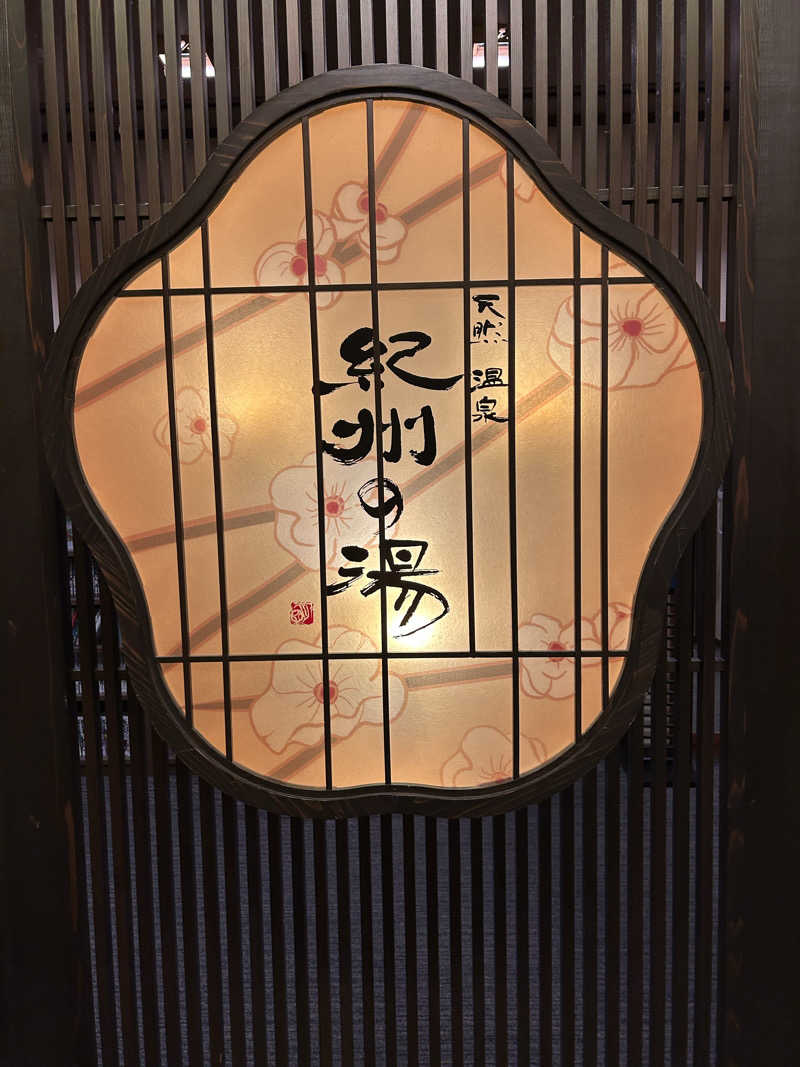 天然 温泉
紀州の湯